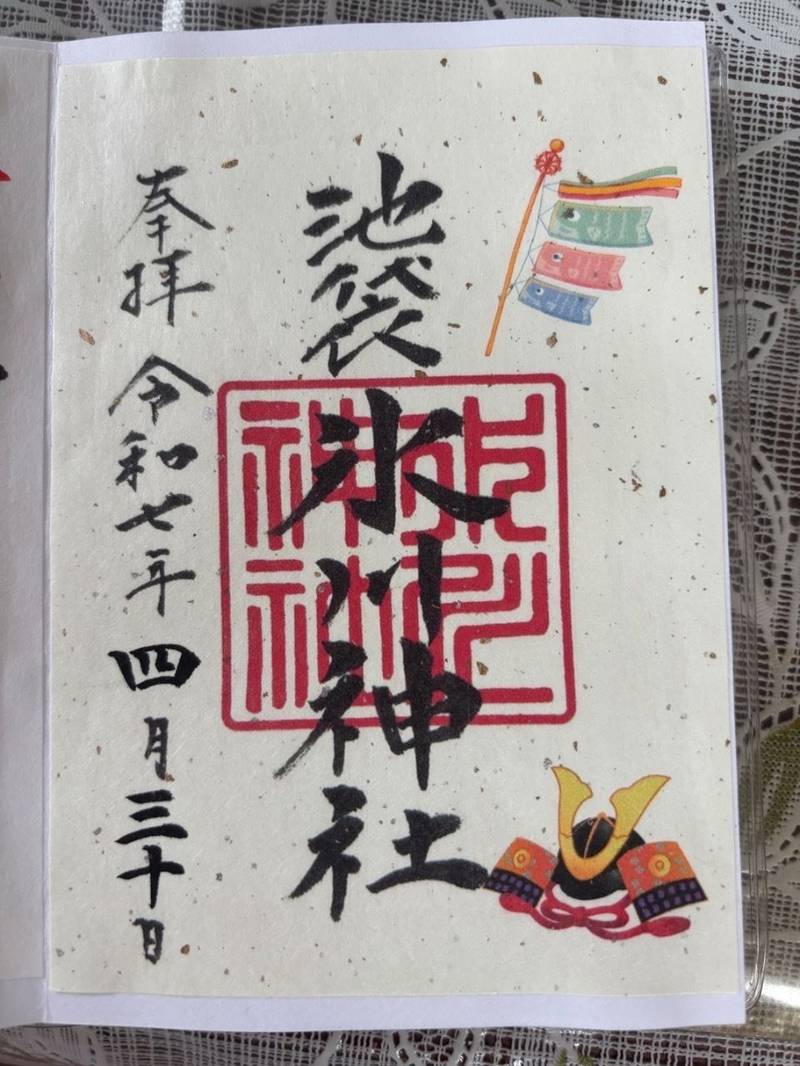 池袋氷川神社
奉拝 令和七年四月三十日